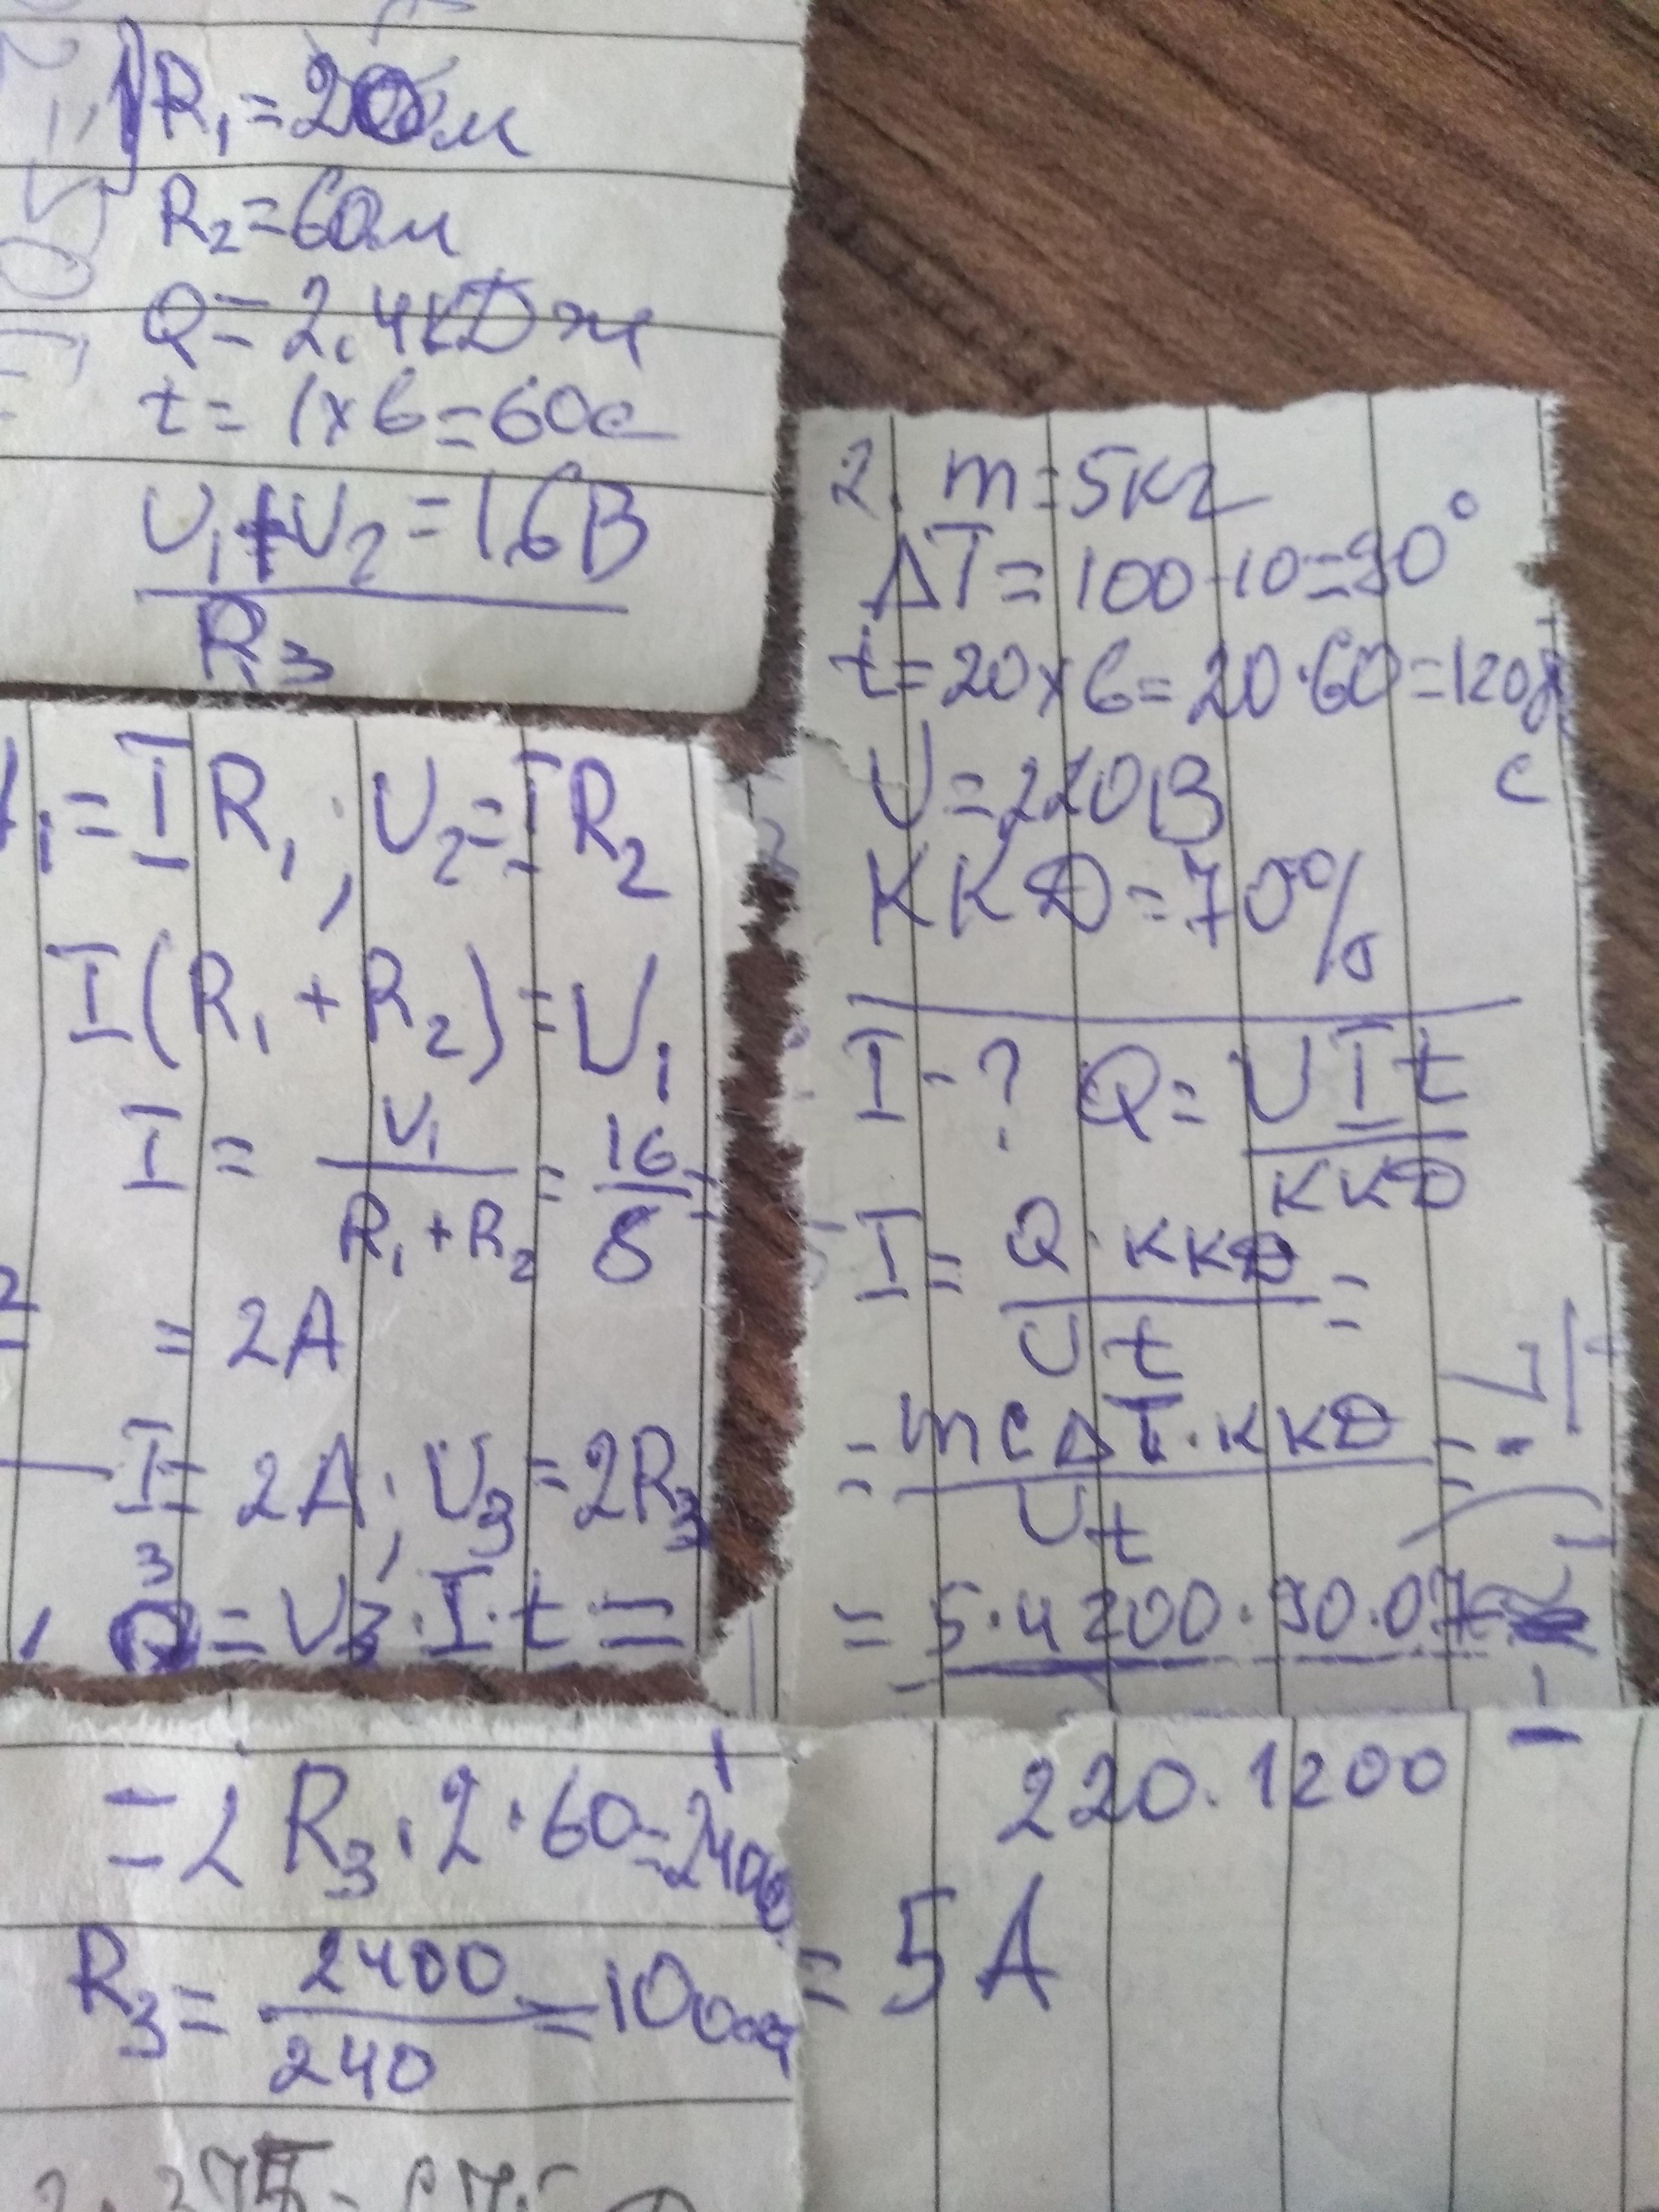 R₁=2Ом
R₂=6Ом
Q=2,4кДж
t=1хв=60с
U₁+U₂=16В
R₃
=IR₁; U₂=IR₂
I(R₁+R₂)=U₁
I = U₁/(R₁+R₂) = 16/8 =
= 2А
I₃= 2А; U₃=2R₃
Q=U₃·I·t=
=2R₃·2·60=2400
R₃= 2400/240 =10Ом
2. m=5кг
ΔT=100-10=90°
t=20хв=20·60=1200
с
U=220В
ККД=70%
I-? Q= UIt/ККД
I= Q·ККД/Ut =
= mcΔT·ККД/Ut =
= 5·4200·90·0,7
220·1200
= 5А